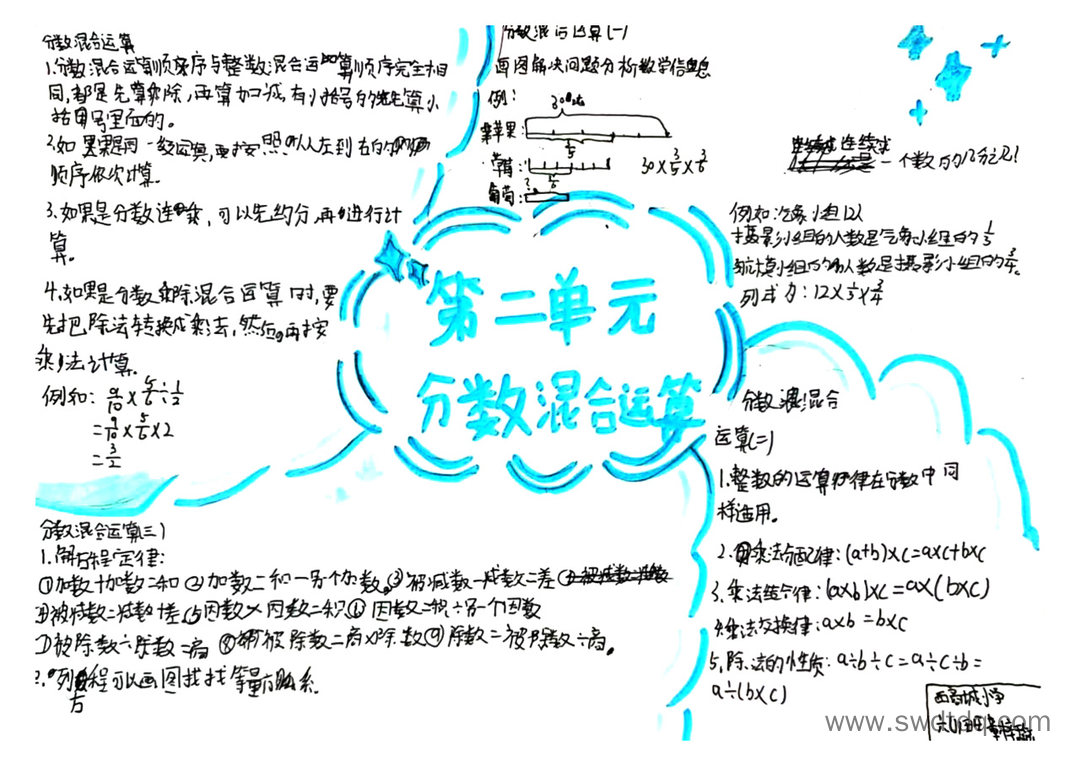 分数混合运算
1.分数混合运算顺序与整数混合运算顺序完全相
同,都是先算乘除,再算加减,有小括号的先算小
括号里面的。
2.如果是同一级运算,要按照从左到右的
顺序依次计算。
3.如果是分数连乘,可以先约分,再进行计
算。
4.如果是分数乘除混合运算时,要
先把除法转换成乘法,然后再按
乘法计算.
例如: 9/10×5/6÷1/2
=9/10×5/6×2
=3/2
分数混合运算(一)
画图解决问题分析数学信息
例:
苹果:
葡萄:
第二单元
分数混合运算
连续求一个数的几分之几!
例如:气象小组12人
摄影小组的人数是气象小组的1/3
航模小组的人数是摄影小组的3/4。
列式为:12×1/3×3/4
分数混合
运算(二)
1.整数的运算律在分数中同
样适用。
2.乘法分配律:(a+b)×c=a×c+b×c
3.乘法结合律:(a×b)×c=a×(b×c)
4.乘法交换律:a×b=b×c
5.除法的性质:a÷b÷c=a÷c÷b=
a÷(b×c)
分数混合运算(三)
1.解方程定律:
①加数+加数=和 ②加数=和-另一个加数 ③被减数-减数=差
④被减数=减数+差 ⑤因数×因数=积 ⑥因数=积÷另一个因数
⑦被除数÷除数=商 ⑧被除数=商×除数 ⑨除数=被除数÷商。
2.列方程可以画图找找等量关系
西高城小学
www.swdtdq.com